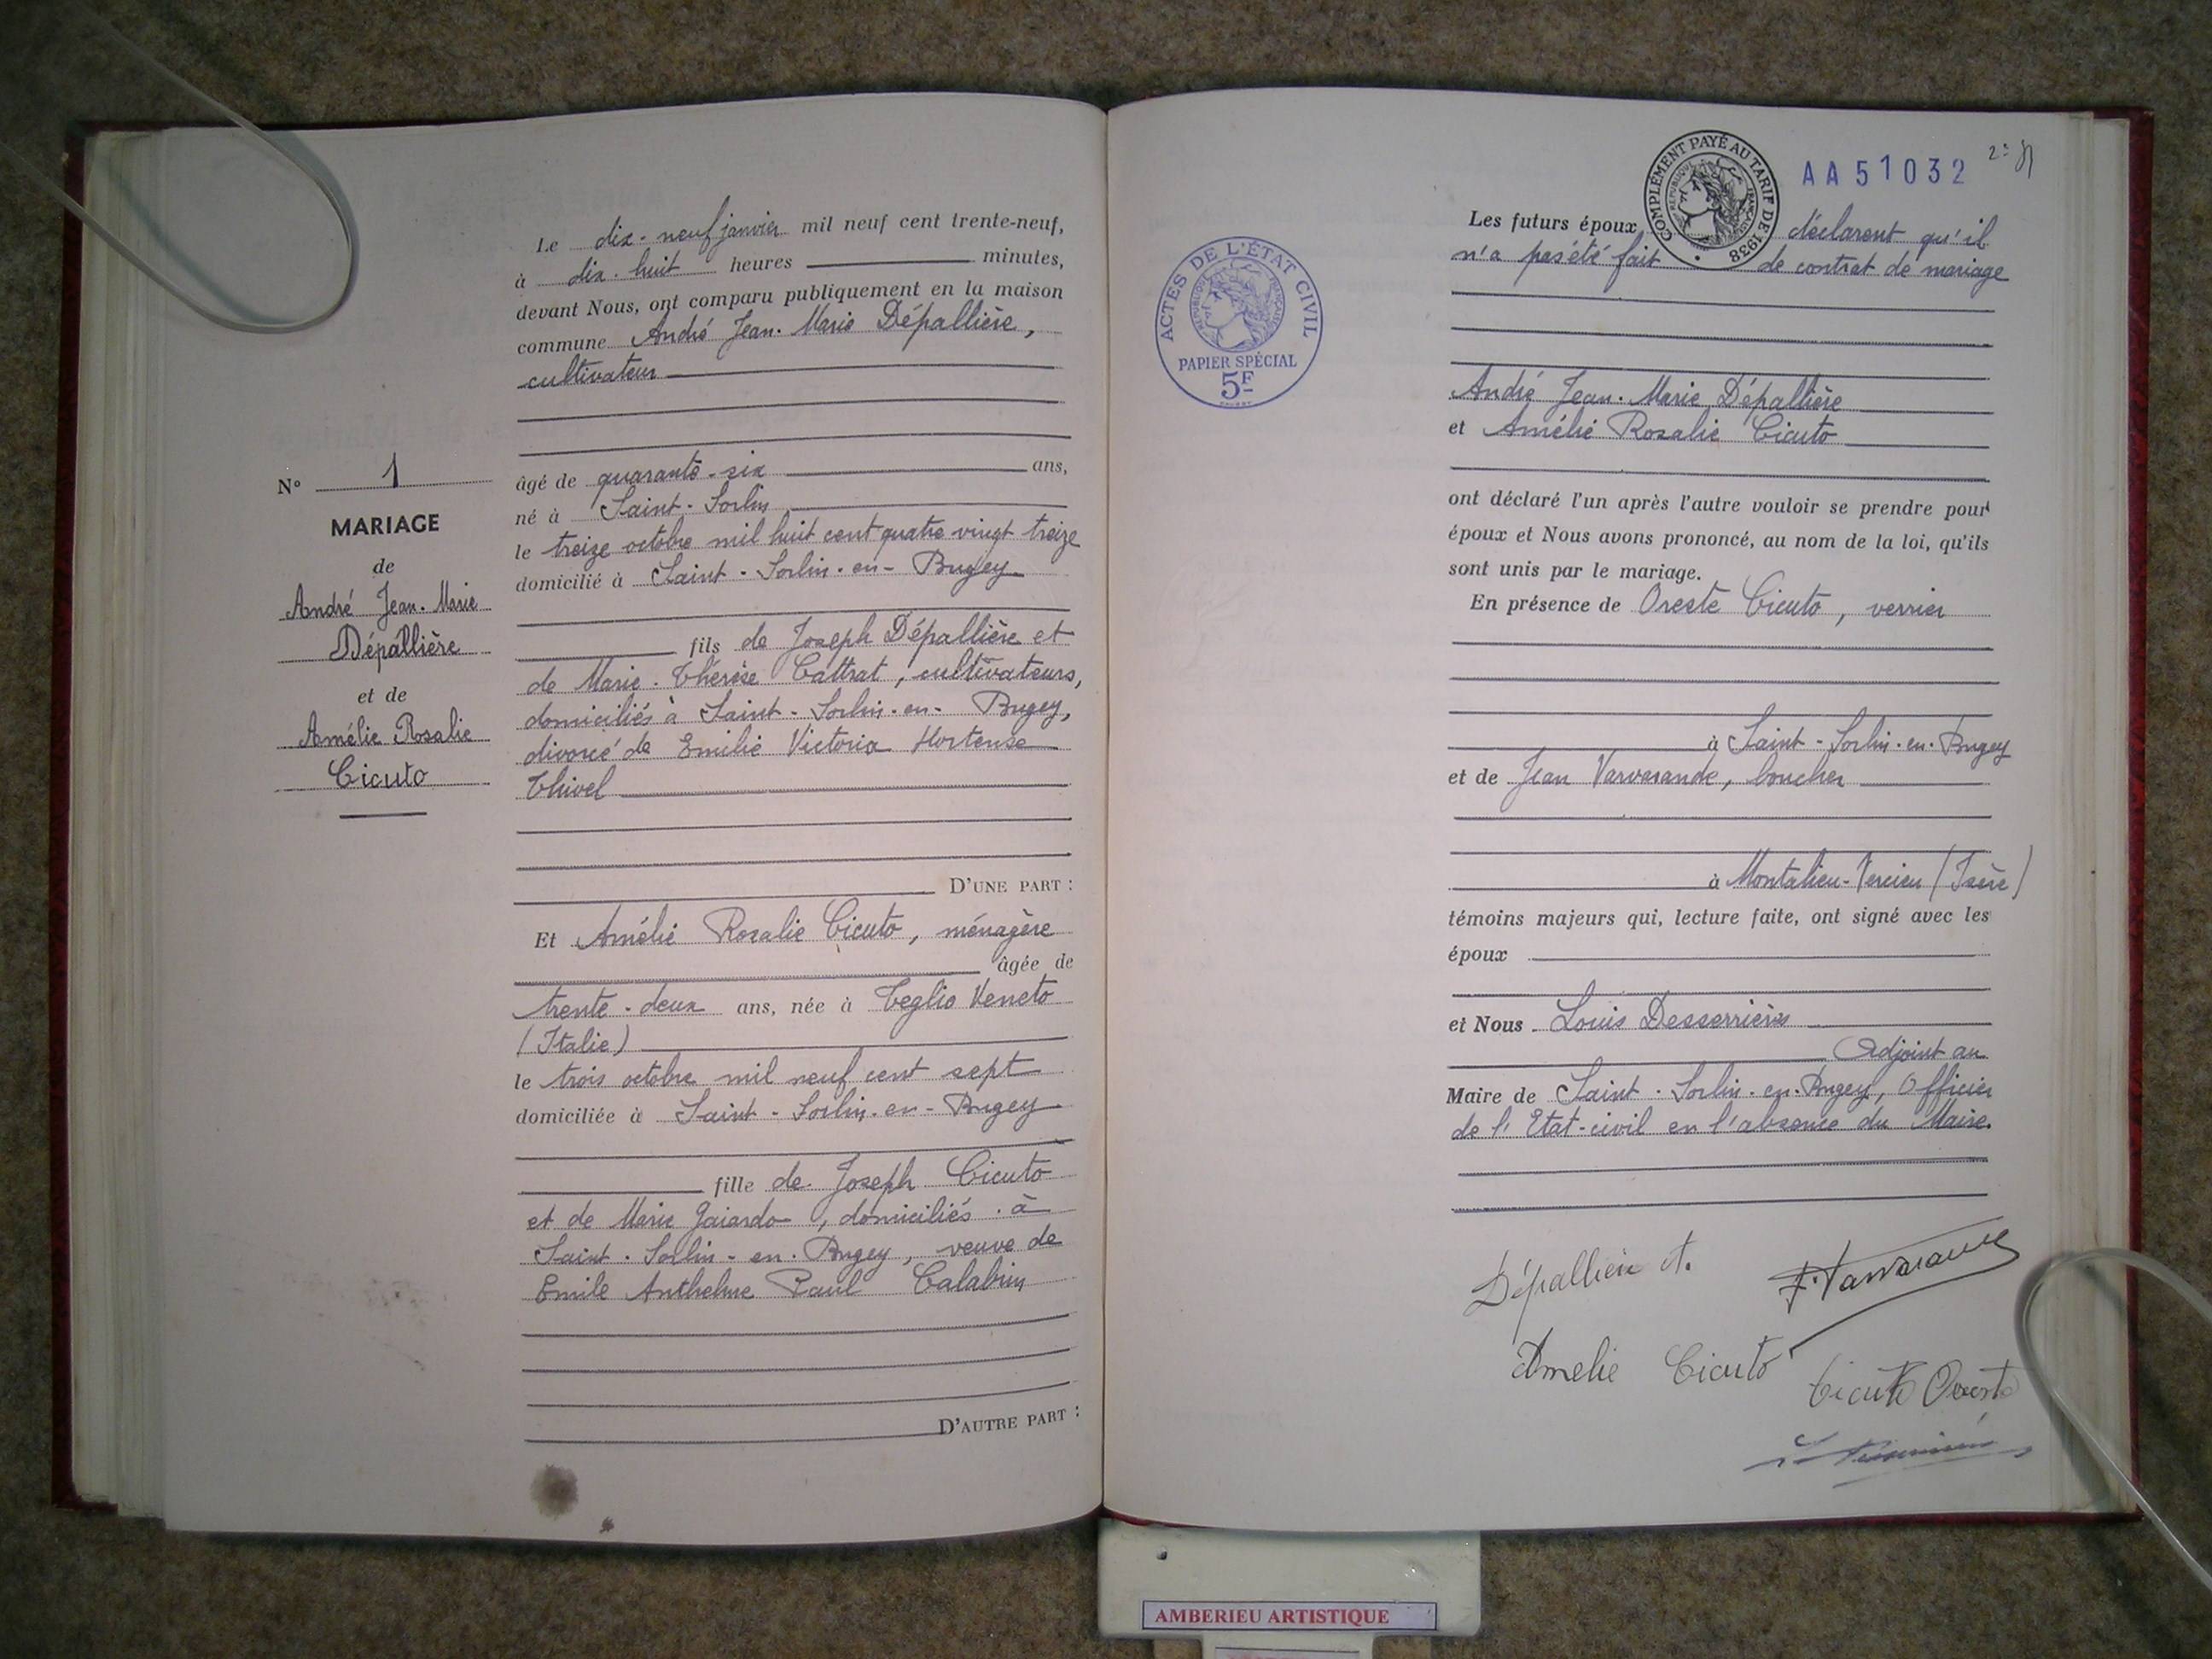 N° 1
MARIAGE
de
André Jean-Marie
Dépallière
et de
Amélie Rosalie
Cicuto
Le dix-neuf janvier mil neuf cent trente-neuf,
à dix-huit heures minutes,
devant Nous, ont comparu publiquement en la maison
commune André Jean-Marie Dépallière,
cultivateur
âgé de quarante-six ans,
né à Saint-Sorlin
le treize octobre mil huit cent quatre vingt treize
domicilié à Saint-Sorlin-en-Bugey
fils de Joseph Dépallière et
de Marie-Thérèse Cattrat, cultivateurs,
domiciliés à Saint-Sorlin-en-Bugey,
divorcé de Emilie Victoria Hortense
Thivel
D'UNE PART :
Et Amélie Rosalie Cicuto, ménagère
âgée de
trente-deux ans, née à Teglio Veneto
(Italie)
le trois octobre mil neuf cent sept
domiciliée à Saint-Sorlin-en-Bugey
fille de Joseph Cicuto
et de Marie Gaiardo, domiciliés à
Saint-Sorlin-en-Bugey, veuve de
Emile Anthelme Paul Calabrin
D'AUTRE PART :
COMPLÉMENT PAYÉ AU TARIF DE 1938
RÉPUBLIQUE FRANÇAISE
AA51032
ACTES DE L'ÉTAT CIVIL
RÉPUBLIQUE FRANÇAISE
PAPIER SPÉCIAL
5F
Les futurs époux déclarent qu'il
n'a pas été fait de contrat de mariage
André Jean-Marie Dépallière
et Amélie Rosalie Cicuto
ont déclaré l'un après l'autre vouloir se prendre pour
époux et Nous avons prononcé, au nom de la loi, qu'ils
sont unis par le mariage.
En présence de Oreste Cicuto, verrier
à Saint-Sorlin-en-Bugey
et de Jean Varvarande, boucher
à Montalieu-Vercieu (Isère)
témoins majeurs qui, lecture faite, ont signé avec les
époux
et Nous Louis Desserrières
Adjoint au
Maire de Saint-Sorlin-en-Bugey, Officier
de l'Etat-civil en l'absence du Maire.
Dépallière A.
Amelie Cicuto
Cicuto Oreste
AMBERIEU ARTISTIQUE